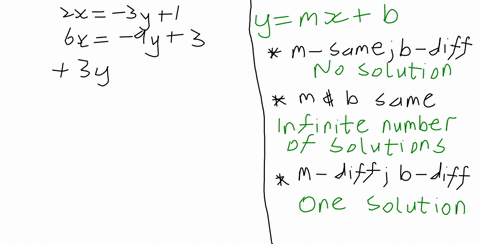 2x = -3y + 1
6x = -9y + 3
+ 3y
y = mx + b
* m - same; b - diff
No solution
* m & b same
Infinite number
of solutions
* m - diff; b - diff
One solution